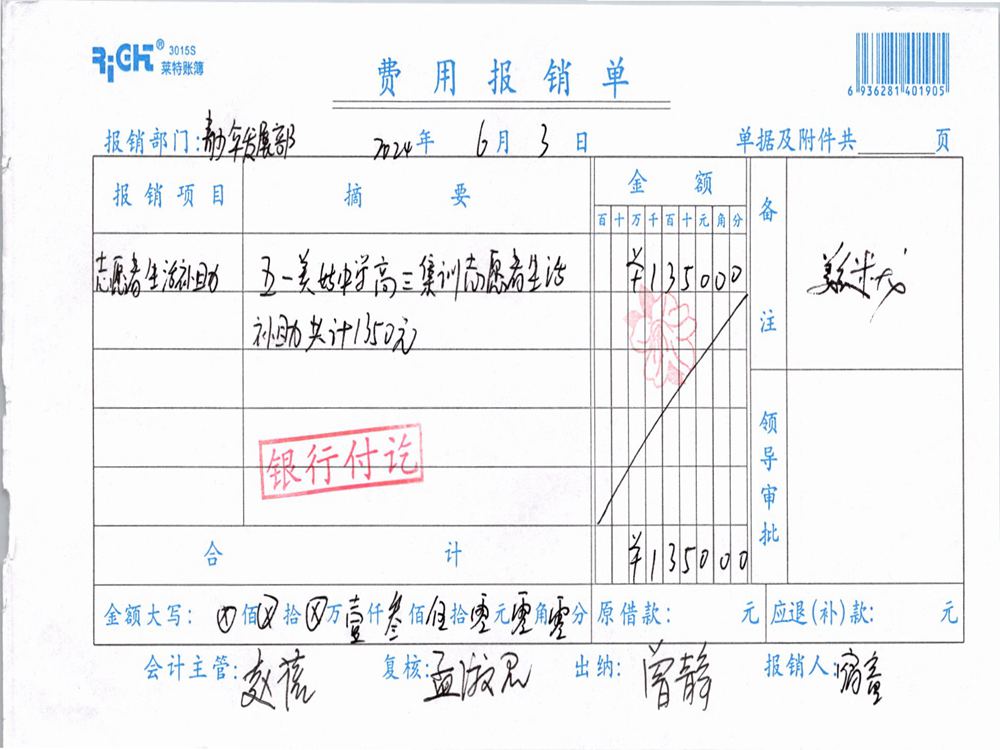 RiGHT® 3015S
莱特账簿
费用报销单
6 936281 401905
报销部门:青少年发展部 2024年 6月 3日 单据及附件共 页
报销项目 摘要 金额 备注
百十万千百十元角分
志愿者生活补助 五一美姑中学高三集训志愿者生活 ¥135000
补助共计1350元
银行付讫
领导审批
合计 ¥135000
金额大写: ⊗佰⊗拾⊗万壹仟叁佰伍拾零元零角零分 原借款: 元 应退(补)款: 元
会计主管: 赵蓓 复核: 孟淑思 出纳: 曾静 报销人: